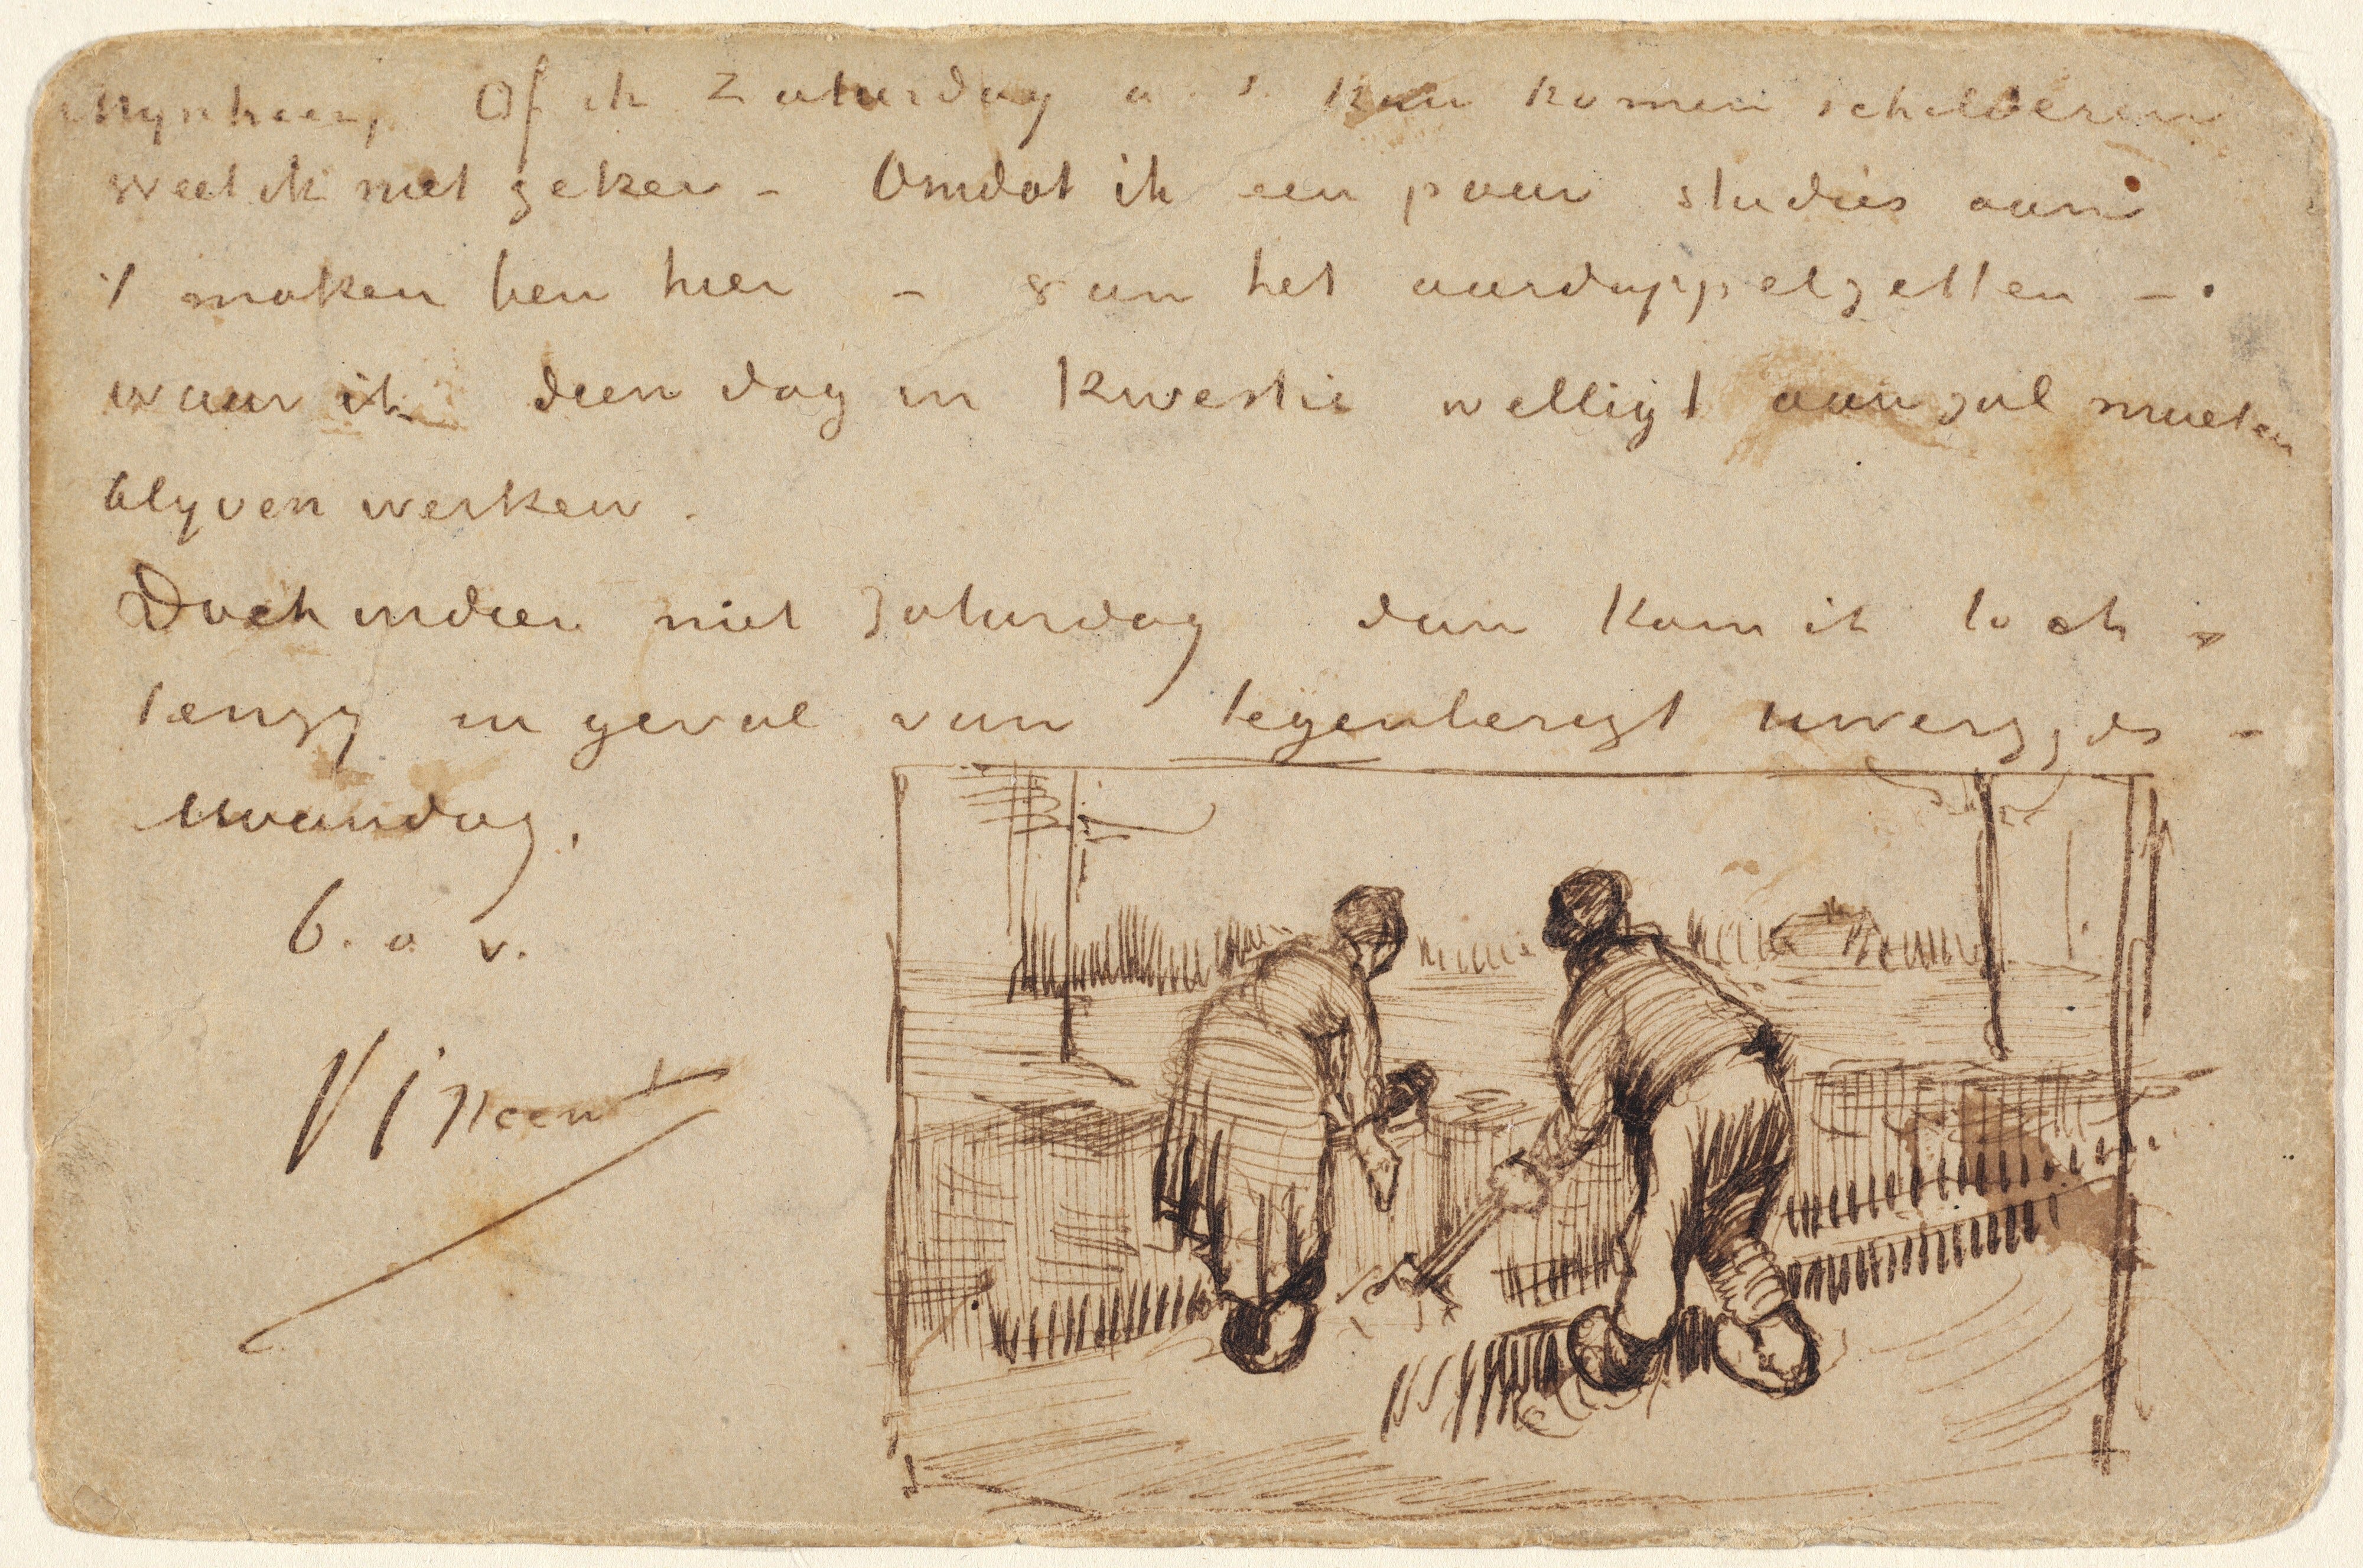 Mynheer, Of ik Zaturdag a.s. kan komen schilderen
weet ik niet zeker – Omdat ik een paar studies aan
't maken ben hier – van het aardappelzetten –.
waar ik dien dag in kwestie welligt aan zal moeten
blyven werken.
Doch indien niet Zaturdag dan kom ik toch –
tenzy in geval van tegenberigt uwerzyds –
Maandag.
b. a v.
Vincent